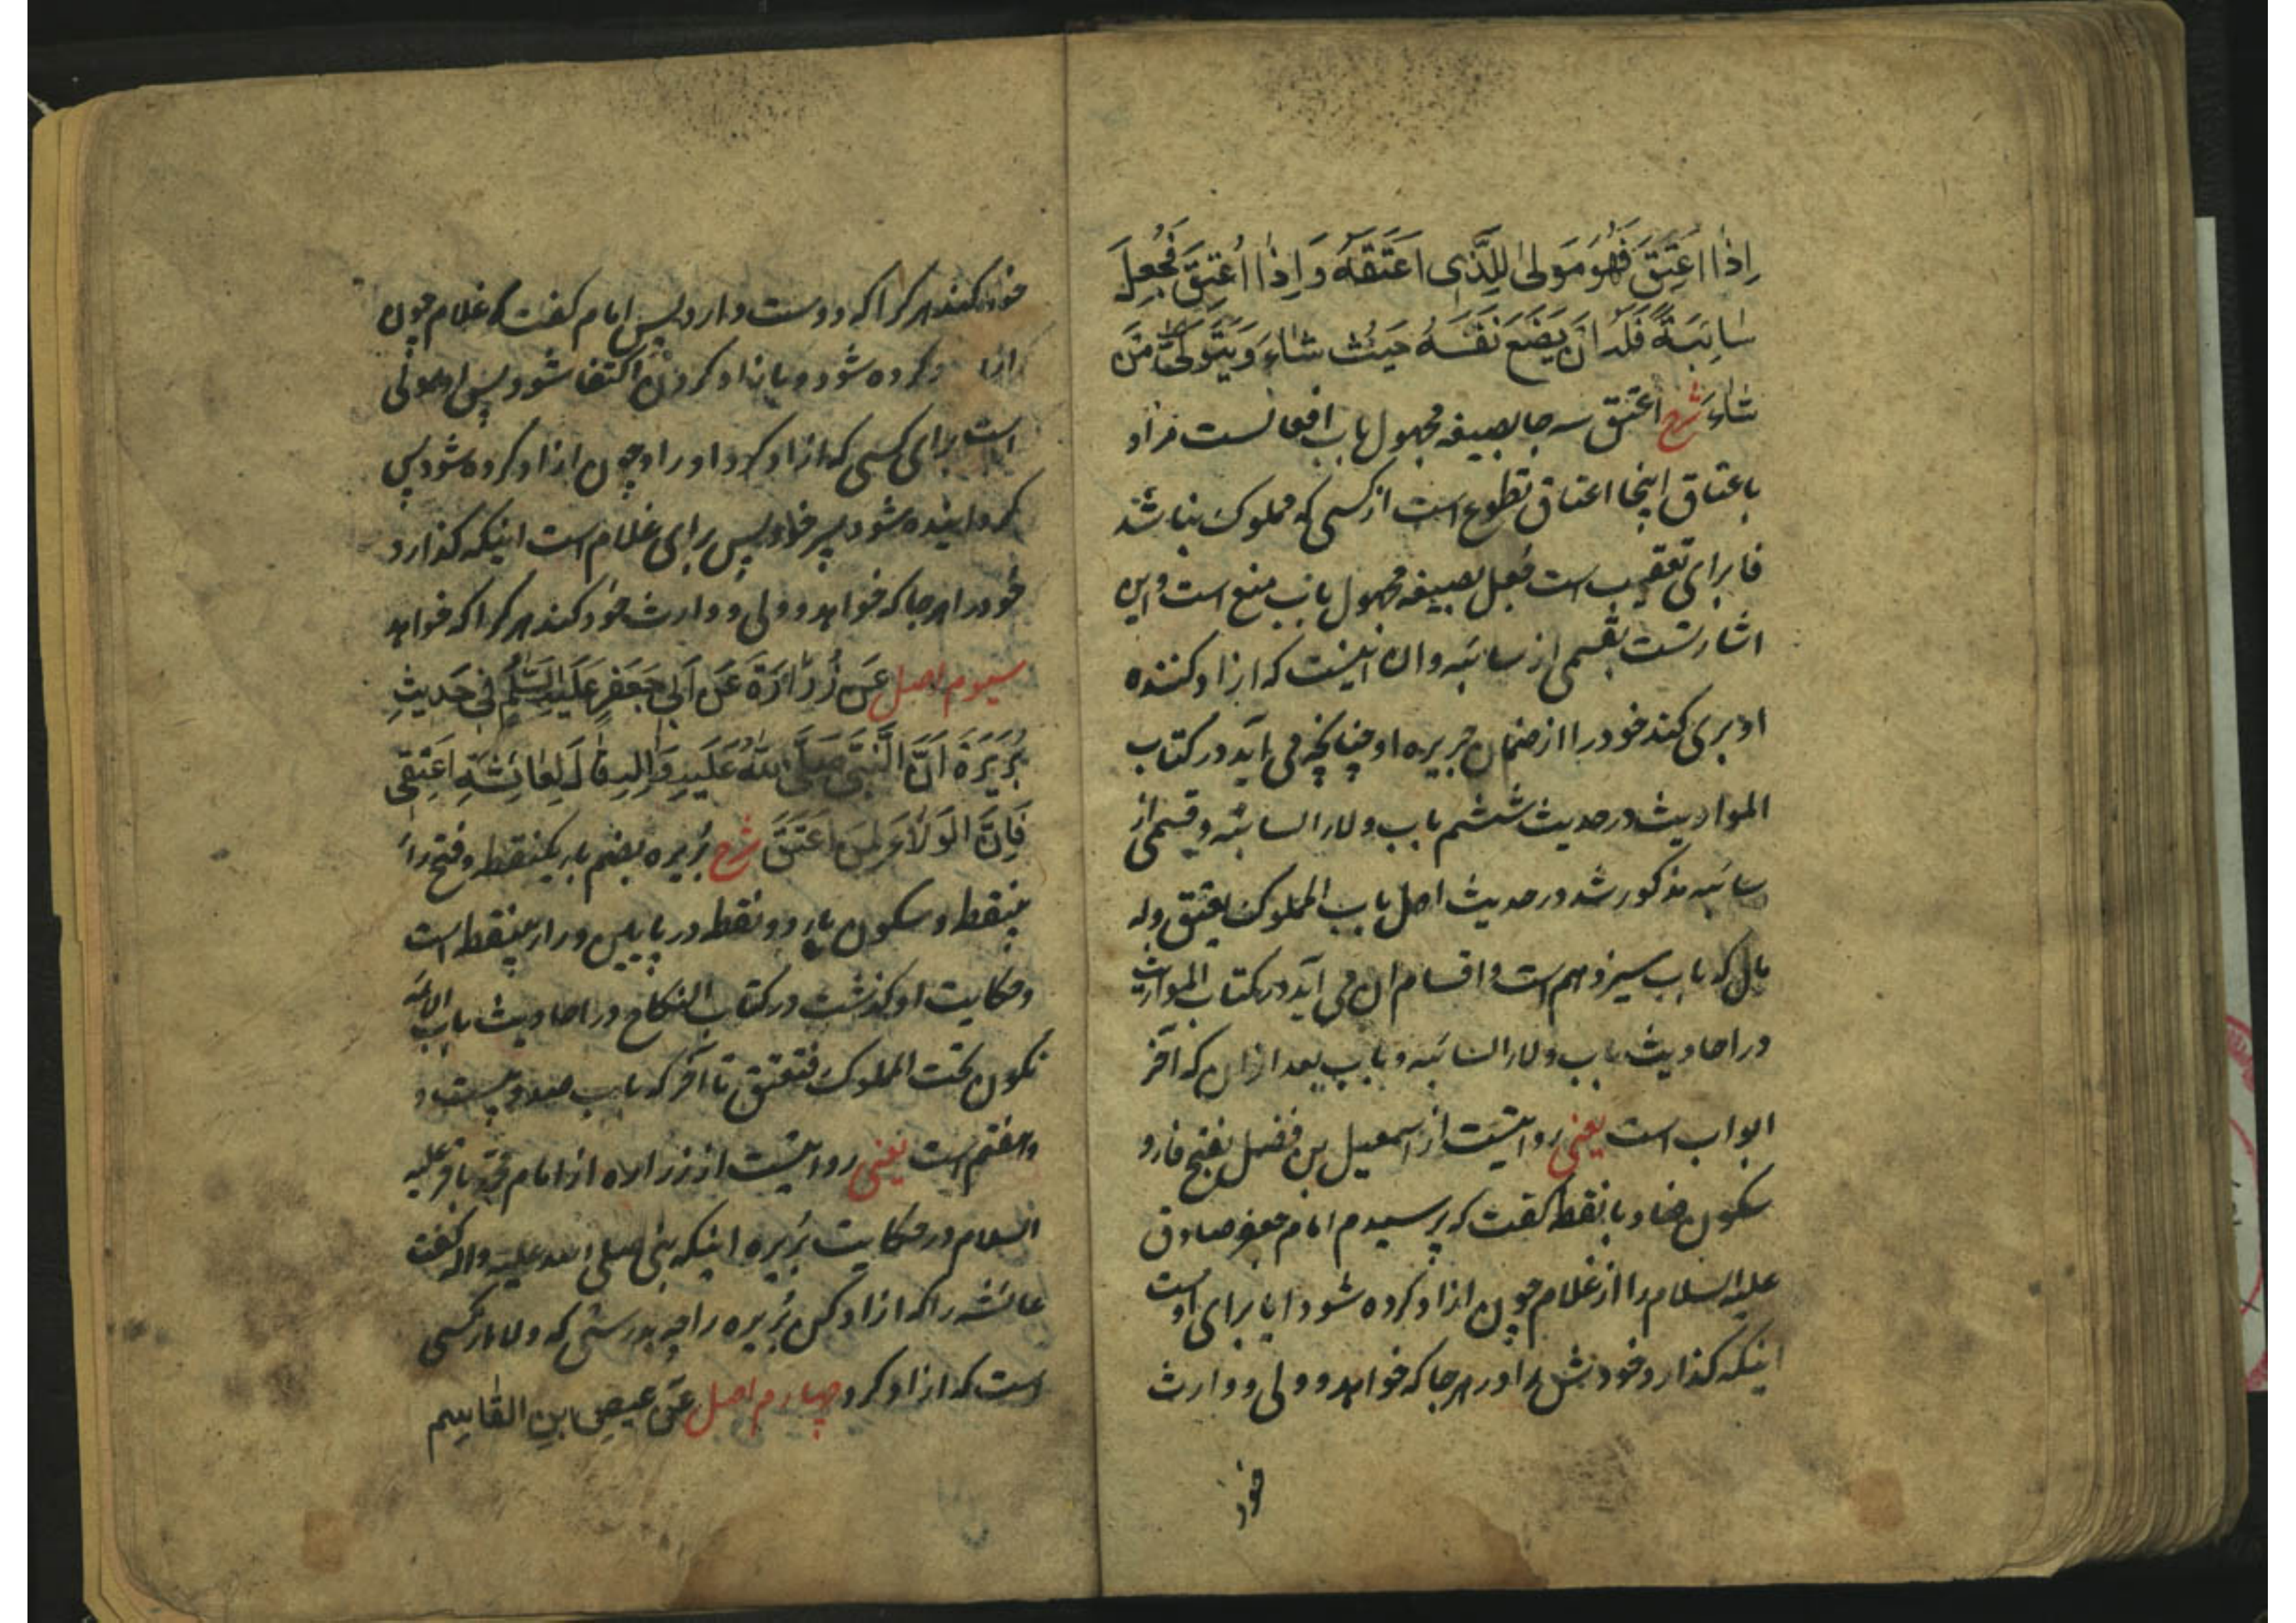 اِذَا اُعْتِقَ فَهُوَ مَوْلیٰ لِلَّذِی اَعْتَقَهُ وَ اِذَا اُعْتِقَ فَجُعِلَ
سَائِبَةً فَلَهُ اَنْ یَضَعَ نَفْسَهُ حَیْثُ شَاءَ وَ یَتَوَلیّٰ مَنْ
شَاءَ شرح اُعتق سه جا بصیغه مجهول باب افعالست مراد
باعتاق اینجا اعتاق تطوع است از کسی که مملوک بنا شد
فا برای تعقیب است جُعل بصیغه مجهول باب منع است و این
اشارتست بقسمی از سائبه وان اینست که ازاد کننده
او بری کند خود را از ضمان جریره او چنانچه می آید در کتاب
المواریث در حدیث ششم باب ولاء السائبه و قسمی از
سائبه مذکور شد در حدیث اصل باب المملوک یعتق وله
مال که باب سیزدهم است و اقسام ان می آید در کتاب المواریث
در احادیث باب ولاء السائبه و باب بعد ازان که آخر
ابواب است یعنی روایتست از اسمعیل بن فضل بفتح فا و
سکون ضاد با نقطه گفت که پرسیدم امام جعفر صادق
علیه السلام را از غلام چون ازاد کرده شود ایا برای اوست
اینکه گذارد خودش را در هر جا که خواهد و ولی و وارث
خود
خود کند هر کرا که دوست دارد پس امام گفت که غلام چون
ازاد کرده شود و بازاد کردن اکتفا شود پس او مولی
است برای کسی که ازاد کرد اورا و چون ازاد کرده شود پس
گردانیده شود سر خود پس برای غلام است اینکه گذارد
خود را هر جا که خواهد و ولی و وارث خود کند هر کرا که خواهد
سیوم اصل عَنْ زُرَارَةَ عَنْ اَبی جَعْفَرٍ عَلَیْهِ السَّلَمُ فی حَدیثِ
بُرَیْرَةَ اَنَّ النَّبیَّ صَلَّی اللهُ عَلَیْهِ وَاٰلِهِ قَالَ لِعَائِشَةِ اَعْتِقی
فَاِنَّ الْوَلَاءَ لِمَنْ اَعْتَقَ شرح بُریره بضم باء یکنقطه و فتح راء
بینقطه و سکون یاء دو نقطه در پایین و راء بینقطه است
و حکایت او گذشت در کتاب النکاح در احادیث باب الامة
تکون تحت المملوک فتعتق تا آخر که باب صد و بیست و
هفتم است یعنی روایتست از زراره از امام محمد باقر علیه
السلام در حکایت بُریره اینکه نبی صلی الله علیه واله گفت
عائشه را که ازاد کن بُریره را چه بدرستی که ولاء از کسی
است که ازاد کرد چهارم اصل عَنْ عیصِ ابنِ القَاسِمِ